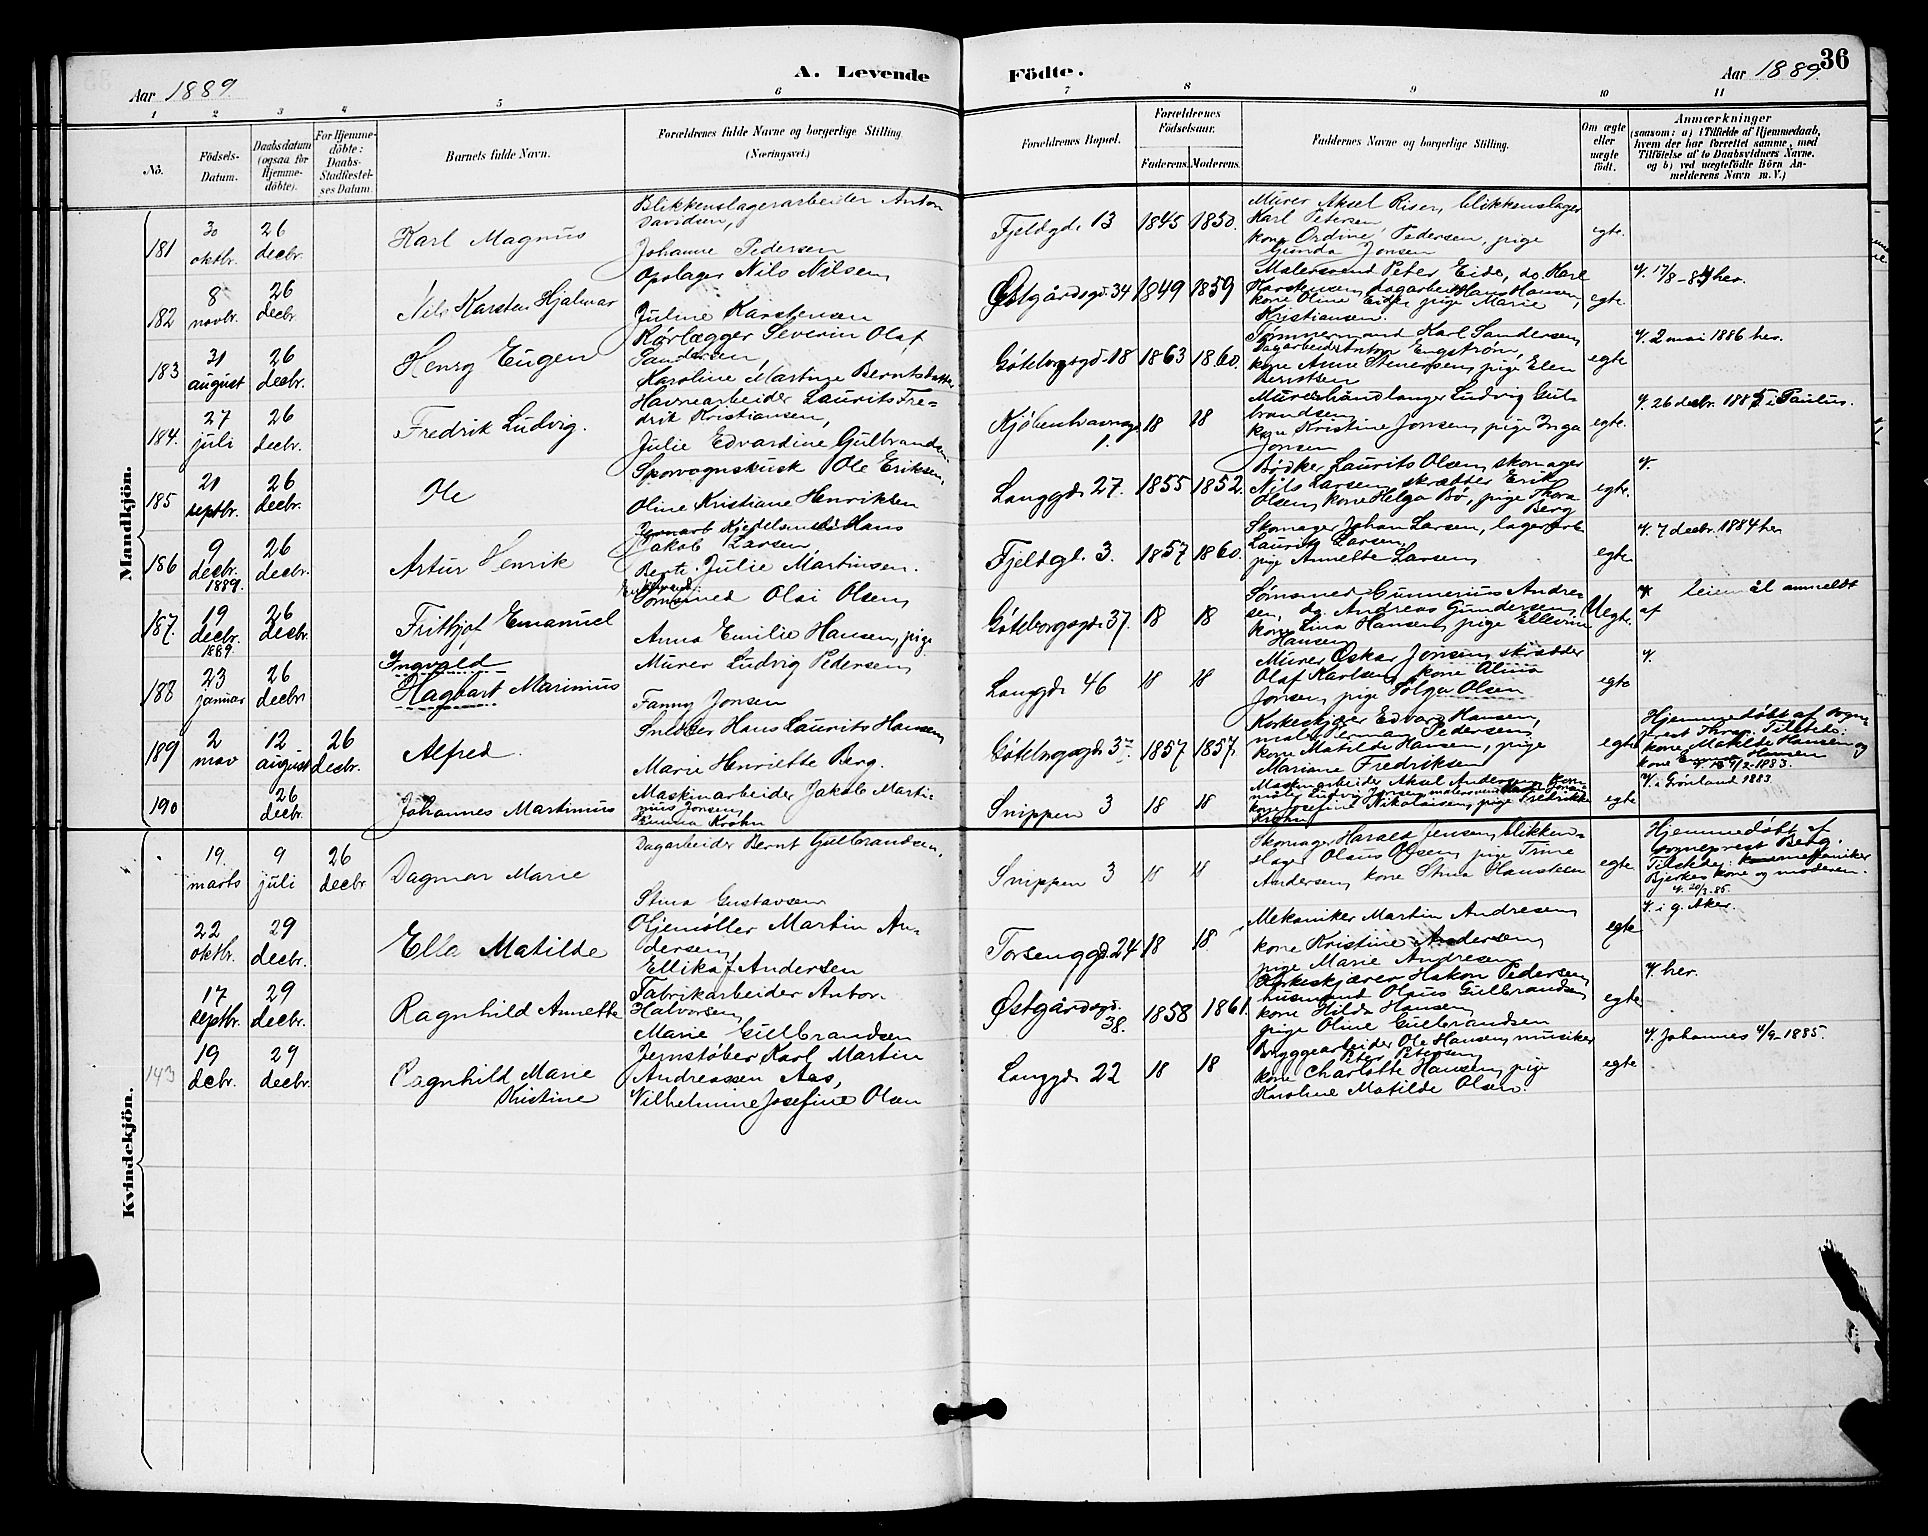 36
Aar 1889.
A. Levende
Födte.
Aar 1889.
1 2 3 4 5 6 7 8 9 10 11
No.
Födsels-
Datum.
Daabsdatum
(ogsaa for
Hjemme-
döbte).
For Hjemme-
döbte:
Daabs-
Stadfæstel-
ses Datum.
Barnets fulde Navn.
Forældrenes fulde Navne og borgerlige Stilling
(Næringsvei.)
Forældrenes Bopæl.
Forældrenes
Födselsaar.
Faderens. Moderens.
Faddernes Navne og borgerlige Stilling.
Om ægte
eller
uægte
født.
Anmærkninger
(saasom: a) i Tilfælde af Hjemmedaab,
hvem der har forrettet samme, med
Tilföielse af to Daabsvidners Navne.
og b) ved uægtefödte Börn An-
melderens Navn m. V.)
Mandkjön.
181
30
oktbr.
26
decbr.
Karl Magnus
Blikkenslagerarbeider Anton
Davidsen,
Johanne Pedersen
Fjeldgd. 13
1845 1850.
Murer Aksel Risen, blikkenslager
Karl Petersen
kone Ordine Pedersen, pige
Gunda Jonsen
egte.
182
8
novbr.
26
decbr.
Nils Karsten Hjalmar
Opslager Nils Nilsen,
Juline Karstensen
Østgårdsgd. 34
1849 1859
Malersvend Peter Eide, do. Karl
Karstensen, dagarbeider Hans Hansen,
kone Oline Eide, pige Marie
Kristiansen.
egte.
V. 17/8-84 her.
183
31
august
26
decbr.
Henry Eugen
Rørlægger Severin Olaf
Sandersen,
Karoline Martine Berntsdatter
Göteborgsgd. 18
1863 1860.
Tømmermand Karl Sandersen,
Dagarbeider Anton Engstrøm,
kone Anne Stinersen, pige Elen
Berntsen
egte
V. 2 mai 1886 her.
184.
27
juli
26
decbr.
Fredrik Ludvig.
Havnearbeider Laurits Fre-
drik Kristiansen,
Julie Edvardine Gulbrandsen
Kjøbenhavnsgd.
1.
18 18
Murerhåndlanger Ludvig Gul-
brandsen
kone Kristine Jonsen, pige Inga
Jonsen
egte.
V. 26 decbr. 1885 i Paulus.
185
21
septbr.
26
decbr.
Ole
Sporvognskusk Ole Eriksen,
Oline Kristiane Henriksen
Langgd. 27.
1855 1852.
Bødker Laurits Olsen, skomager
Nils Larsen, skrædder Erik
Olsen, kone Helga Bø, pige Thora
Berg
egte.
V.
186
9
decbr.
1889.
26
decbr.
Artur Henrik
Hans
Jakob Larsen
Berte Julie Martinsen.
Fjeldgd. 3.
1857 1860.
Skomager Johan Larsen, lagerarb.
Laurits Larsen,
pige Annette Larsen,
egte.
V. 7 decbr. 1884 her
187.
19
decbr.
1889.
26
decbr.
Frithjof Emanuel
Enkemand
Sømsmed Olai Olsen,
Anna Emilie Hansen, pige
Göteborgsgd. 37.
18 18
Sømsmed Gunnerius Andre-
sen, do. Andreas Gundersen,
kone Lina Hansen, pige Ellevine
Hansen
Uegte.
leiermål anmeldt
af
188
23
januar
26
decbr.
Ingvald
Hagbart Marinius
Murer Ludvig Pedersen,
Fanny Jonsen
Langgd. 46
18 18
Murer Oskar Jonsen, skrædder
Olaf Karlsen, kone Olina
Jonsen, pige Solga Olsen
egte
V.
189
2
mai
12
august
26
decbr.
Alfred.
Snedker Hans Laurits Hansen,
Marie Henriette Berg.
Göteborgsgd. 37.
1857 1857.
Korkeskjærer Edvard Hansen,
maler Herman Pedersen,
kone Matilde Hansen, pige
Mariane Fredriksen
egte
Hjemmedøbt af sogne-
prest Thrap. Tilstede:
kone Matilde Hansen og
kone Emma Hansen
V. 18/2-1883.
190
26
decbr.
Johannes Martinius
Maskinarbeider Jakob Marti-
nius Jonsen,
Emma Krohn
Snippen 3
18 18
Maskinarbeider Aksel Andersen,
kone Josefine Nikolaisen, pige Fredrikke
Krohn
egte
V. i Grønland 1883.
Kvindekjön.
19.
marts
9
juli
26
decbr
Dagmar Marie
Dagarbeider Bernt Gulbrandsen,
Stina Gustavsen
Snippen 3
18 18
Skomager Harald Jensen, blikken-
slager Olaus Olsen, pige Trine
Andersen, kone Stina Hansteen
egte
Hjemmedøbt af
sogneprest Berg.
Tilstede: mekaniker
Bjerkes kone og moderen.
V. 20/3.85.
22
oktbr.
29
decbr.
Ella Matilde
Oljemøller Martin An-
dersen,
Ellika J Andersen
Torsenggd. 24
18 18.
Mekaniker Martin Andresen,
kone Kristine Andersen,
pige Marie Andresen
egte
V. i g. Aker.
17
septbr.
29
decbr.
Ragnhild Annette
Fabrikarbeider Anton
Halvorsen,
Marie Gulbrandsen
Østgårdsgd.
38.
1858 1861.
Korkeskjærer Hakon Pedersen,
husmand Olaus Gulbrandsen,
kone Hilda Hansen,
pige Oline Gulbrandsen
egte
V. her.
143
19
decbr.
29
decbr.
Ragnhild Marie
Kristine
Jernstøber Karl Martin
Andreassen Aas,
Vilhelmine Josefine Olsen
Langgd. 22
18 18
Bryggearbeider Ole Hansen, musiker
Peter Petersen,
kone Charlotte Hansen, pige
Karoline Matilde Olsen.
egte
V. Johannes 4/9-1885.